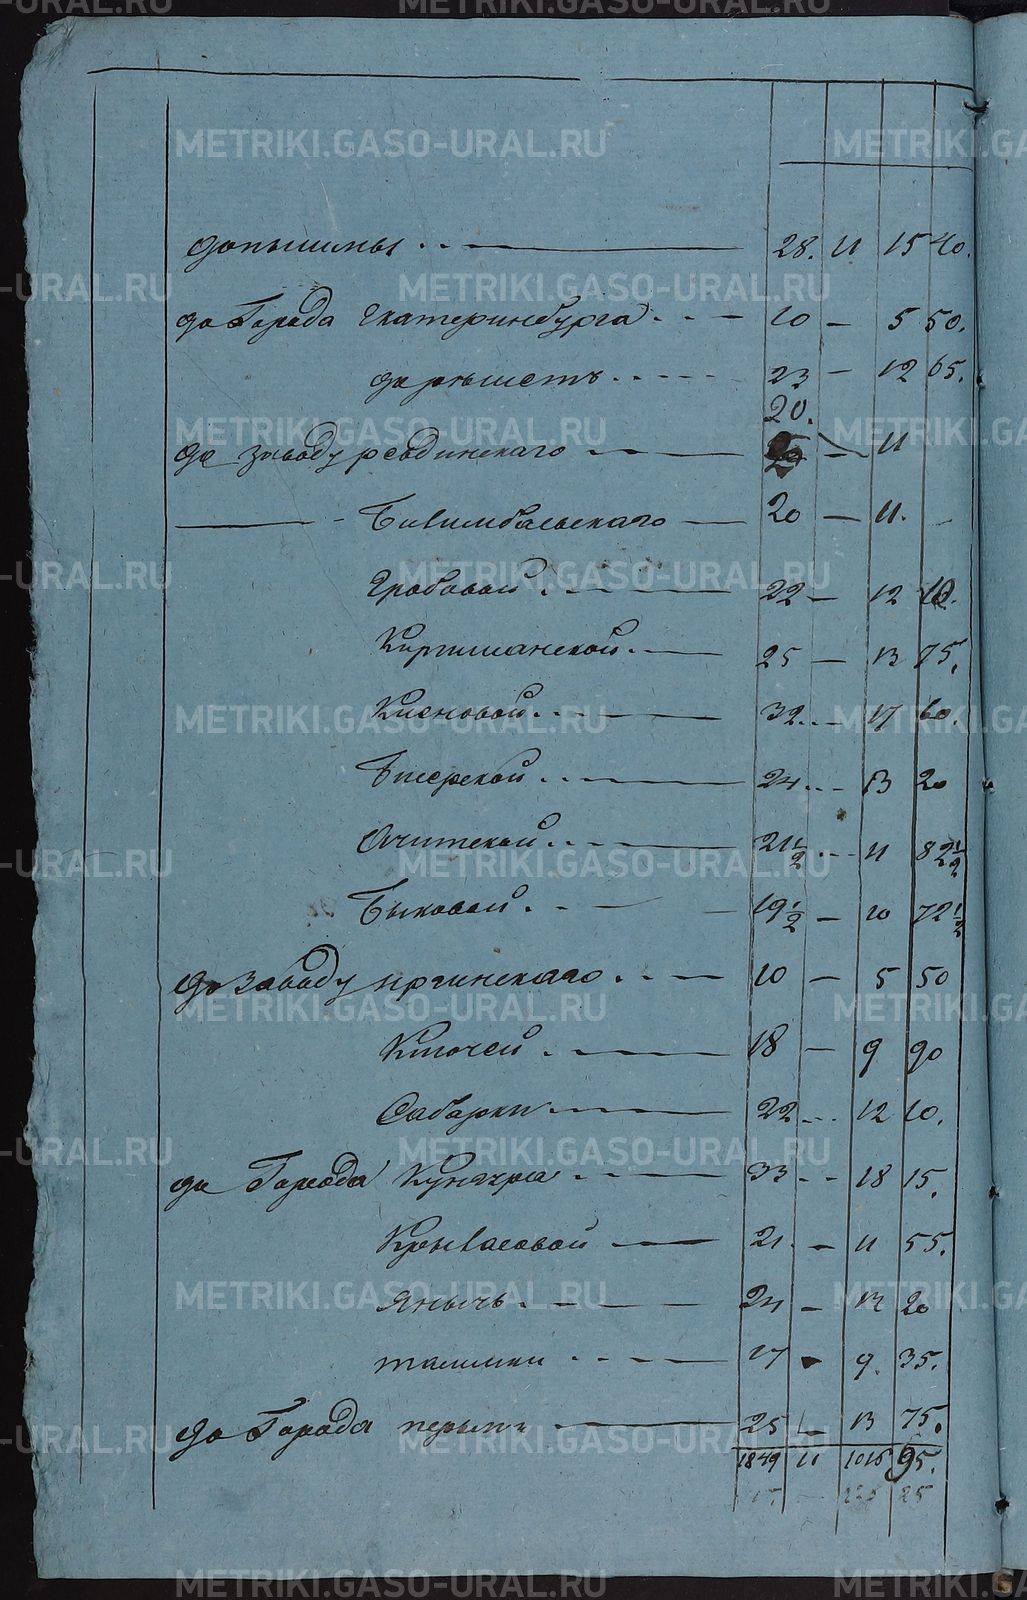 до пышмы 28. 11 15 40.
до Города Екатеринбурга 10 — 5 50.
до решетъ 23 — 12 65.
20.
до заводу ревдинскаго — 11
Билимбаевскаго 20 — 11. —
Гробовой 22 — 12 10.
Киргишанской 25 — 13 75.
Кленовой 32 17 60.
Бисерской 24 13 20
Ачитской 21 1/2 11 82 1/2
Быковой 19 1/2 — 10 72 1/2
до Заводу иргинскаго 10 — 5 50
Ключей 18 — 9 90
Сабарки 22 12 10.
до Города Кунгура 33 18 15.
Крыласовой 21. — 11 55.
Янычь 24 — 13 20
талмки 17 9. 35.
до Города перми 25 — 13 75.
1849 11 1015 95.
25
METRIKI.GASO-URAL.RU